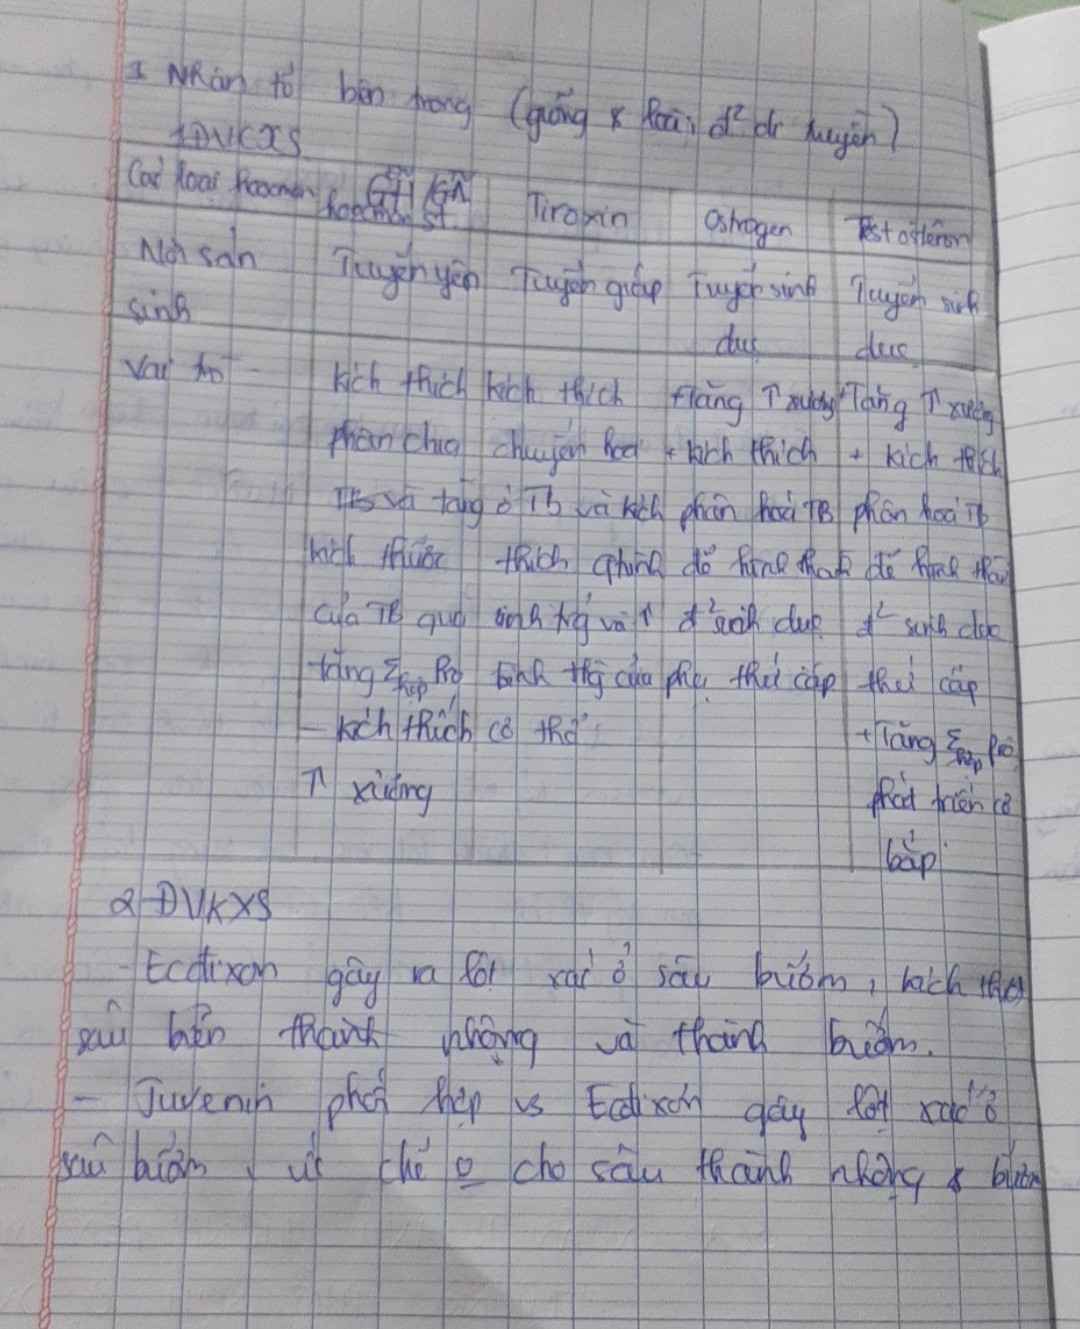 I Nhân tố bên trong (giống & loài, đ² di truyền)
1 ĐVCXS
Các loại hoocmon hoocmon ST GH Tiroxin Ostrogen Testosteron
Nơi sản Tuyến yên Tuyến giáp Tuyến sinh Tuyến sinh
sinh dục dục
Vai trò - kích thích kích thích +tăng ↑ xương +Tăng ↑ xương
phân chia chuyển hoá + kích thích + kích thích
TB và tăng ở TB và kích phân hoá TB phân hoá TB
kích thước thích qtrình để hình thành để hình thành
của TB qua sinh trg và ↑ đ² sinh dục đ² sinh dục
tăng Σhợp Pro bình thg của thứ cấp thứ cấp
- kích thích cơ thể +Tăng Σhợp pro
↑ xương phát triển cơ
bắp
2 ĐVKXS
- Ecdixon gây ra lột xác ở sâu bướm, kích thích
sâu biến thành nhộng và thành bướm.
- Juvenin phối hợp vs Ecdixon gây lột xác ở
sâu bướm, ức chế o cho sâu thành nhộng & bướm